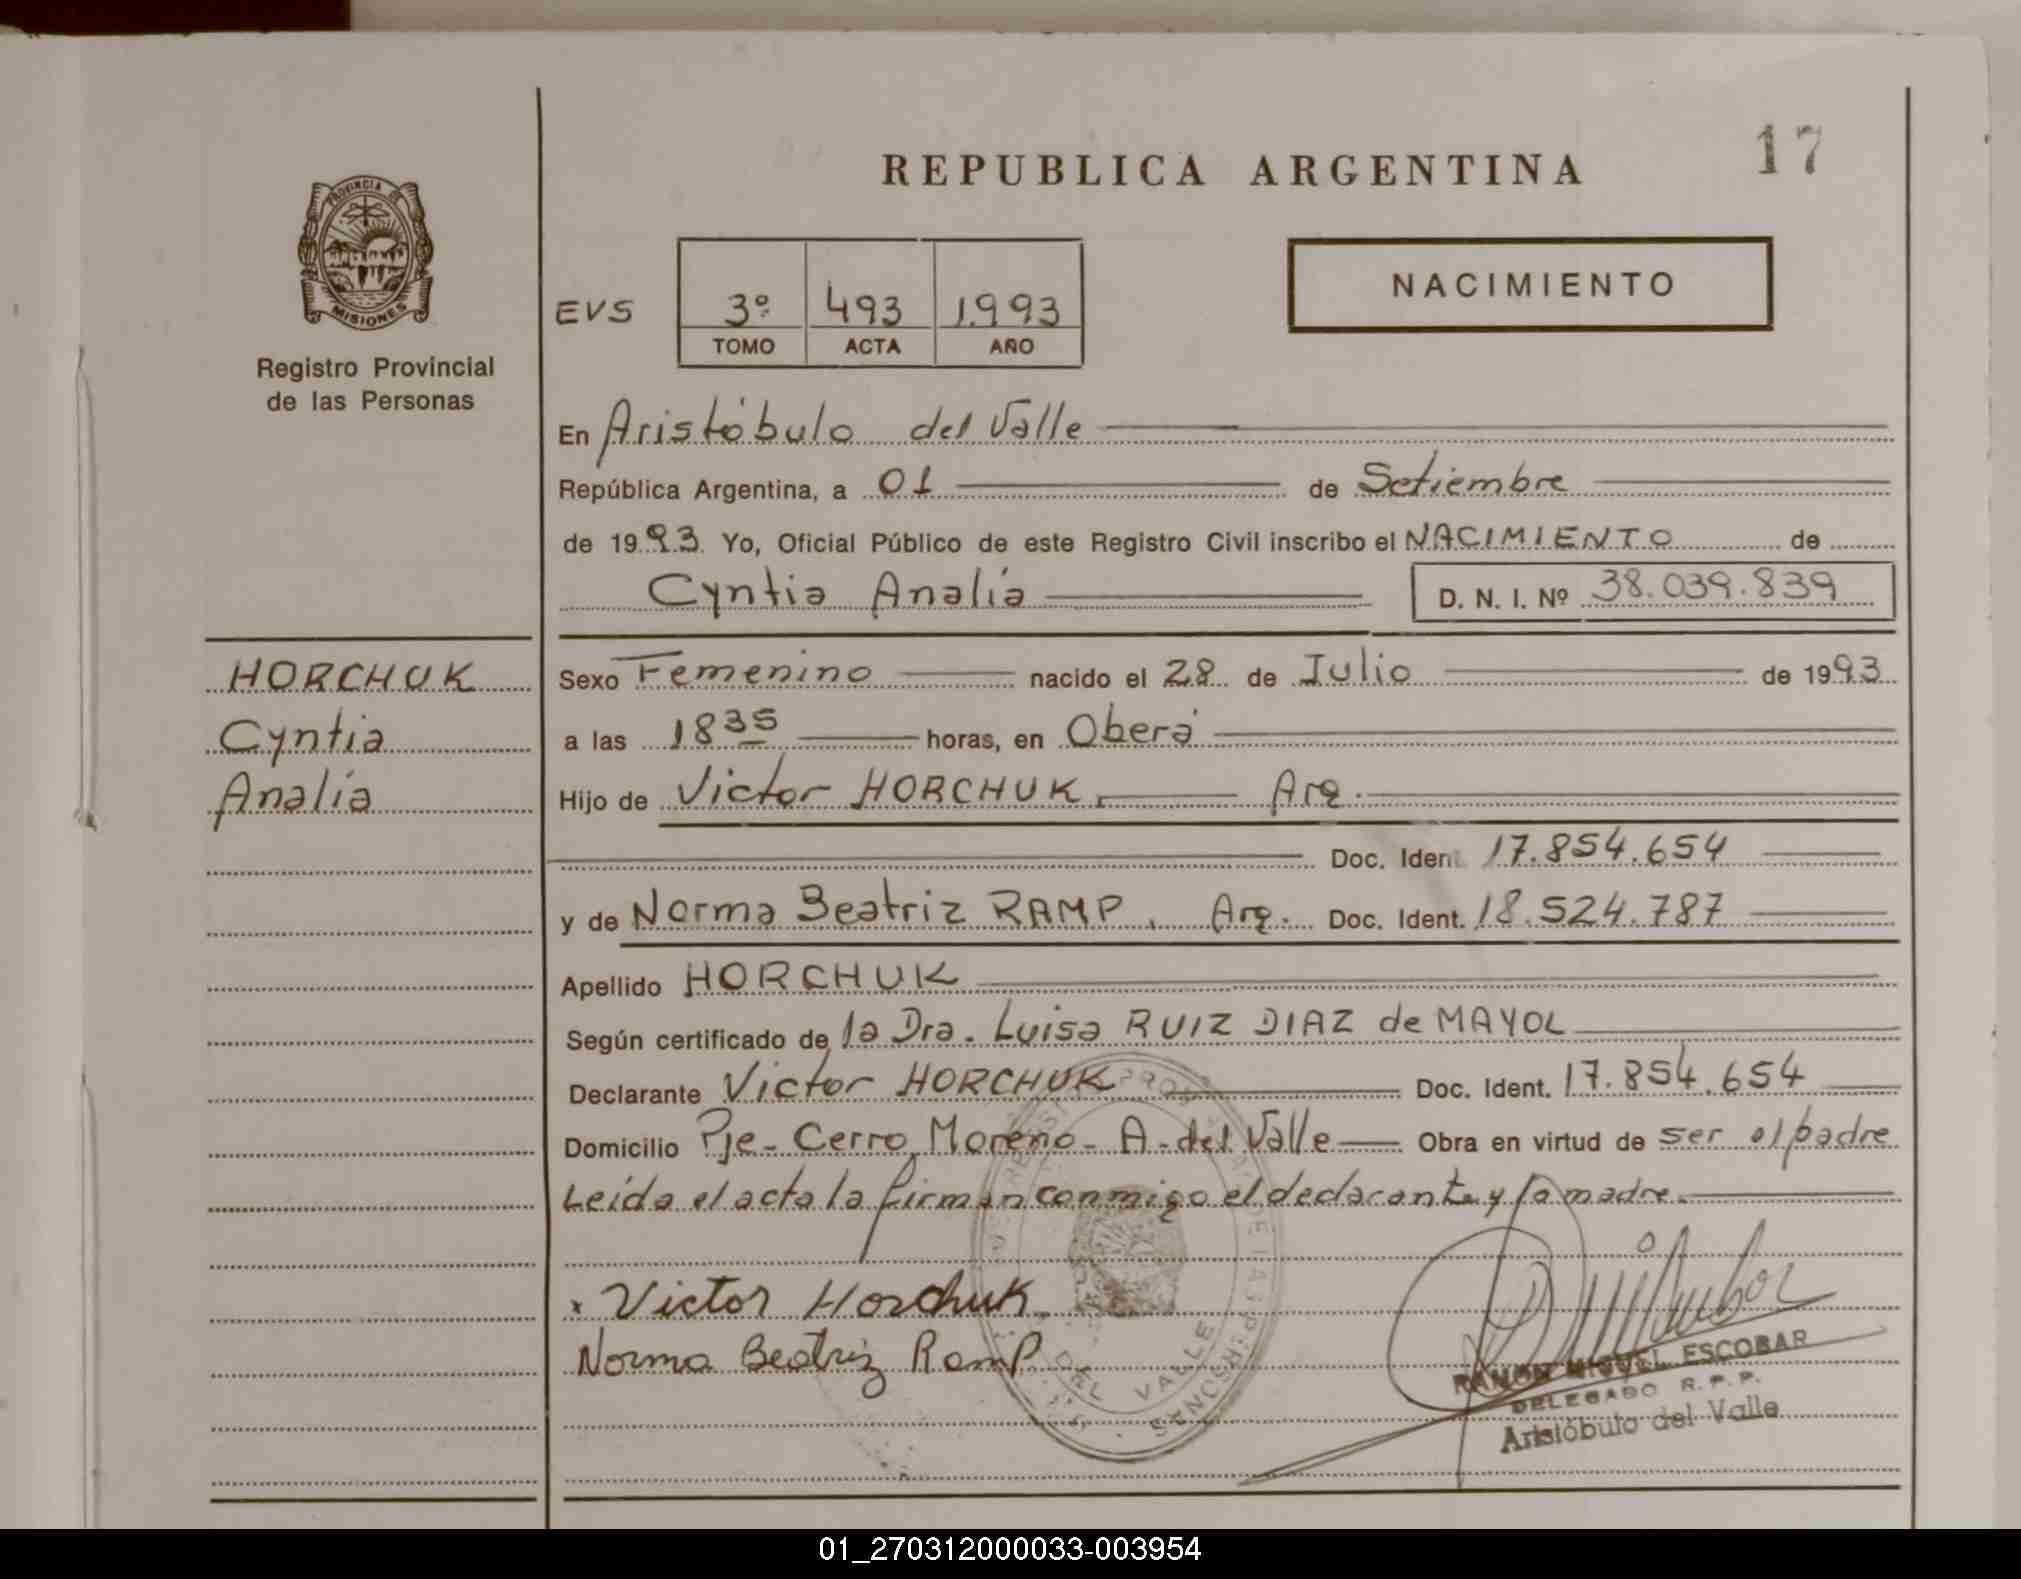 17
REPUBLICA ARGENTINA
PROVINCIA DE
MISIONES
Registro Provincial
de las Personas
EVS 3º 493 1.993
TOMO ACTA AÑO
NACIMIENTO
En Aristóbulo del Valle
República Argentina, a 01 de Setiembre
de 1993 Yo, Oficial Público de este Registro Civil inscribo el NACIMIENTO de
Cyntia Analía D. N. I. Nº 38.039.839
HORCHUK
Cyntia
Analía
Sexo Femenino nacido el 28 de Julio de 1993
a las 18 35 horas, en Oberá
Hijo de Victor HORCHUK. Arg.
Doc. Ident. 17.854.654
y de Norma Beatriz RAMP. Arg. Doc. Ident. 18.524.787
Apellido HORCHUK
Según certificado de la Dra. Luisa RUIZ DIAZ de MAYOL
Declarante Victor HORCHUK Doc. Ident. 17.854.654
Domicilio Pje- Cerro Moreno- A-del Valle Obra en virtud de ser el padre
Leída el acta la firman conmigo el declarante y la madre.
x Victor Horchuk
Norma Beatriz Ramp
DEL VALLE
RAMON MIGUEL ESCOBAR
DELEGADO R.P.P.
Aristóbulo del Valle
01_270312000033-003954